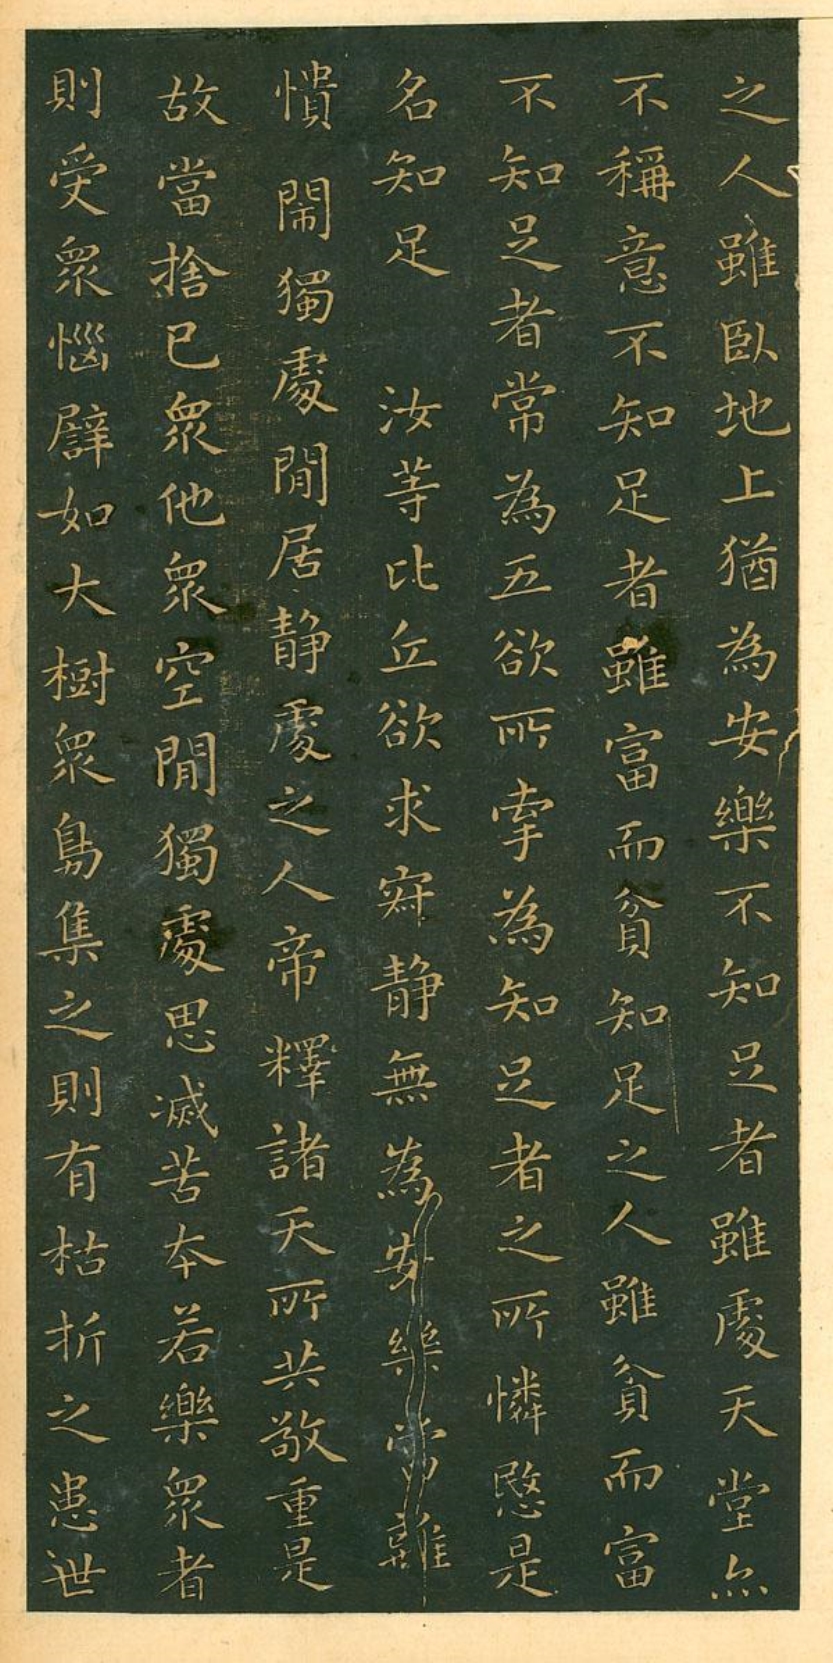 之人雖臥地上猶為安樂不知足者雖處天堂亦
不稱意不知足者雖富而貧知足之人雖貧而富
不知足者常為五欲所牽為知足者之所憐愍是
名知足　汝等比丘欲求寂靜無為安樂當離
憒閙獨處閒居静處之人帝釋諸天所共敬重是
故當捨已衆他衆空閒獨處思滅苦本若樂衆者
則受衆惱譬如大樹衆鳥集之則有枯折之患世